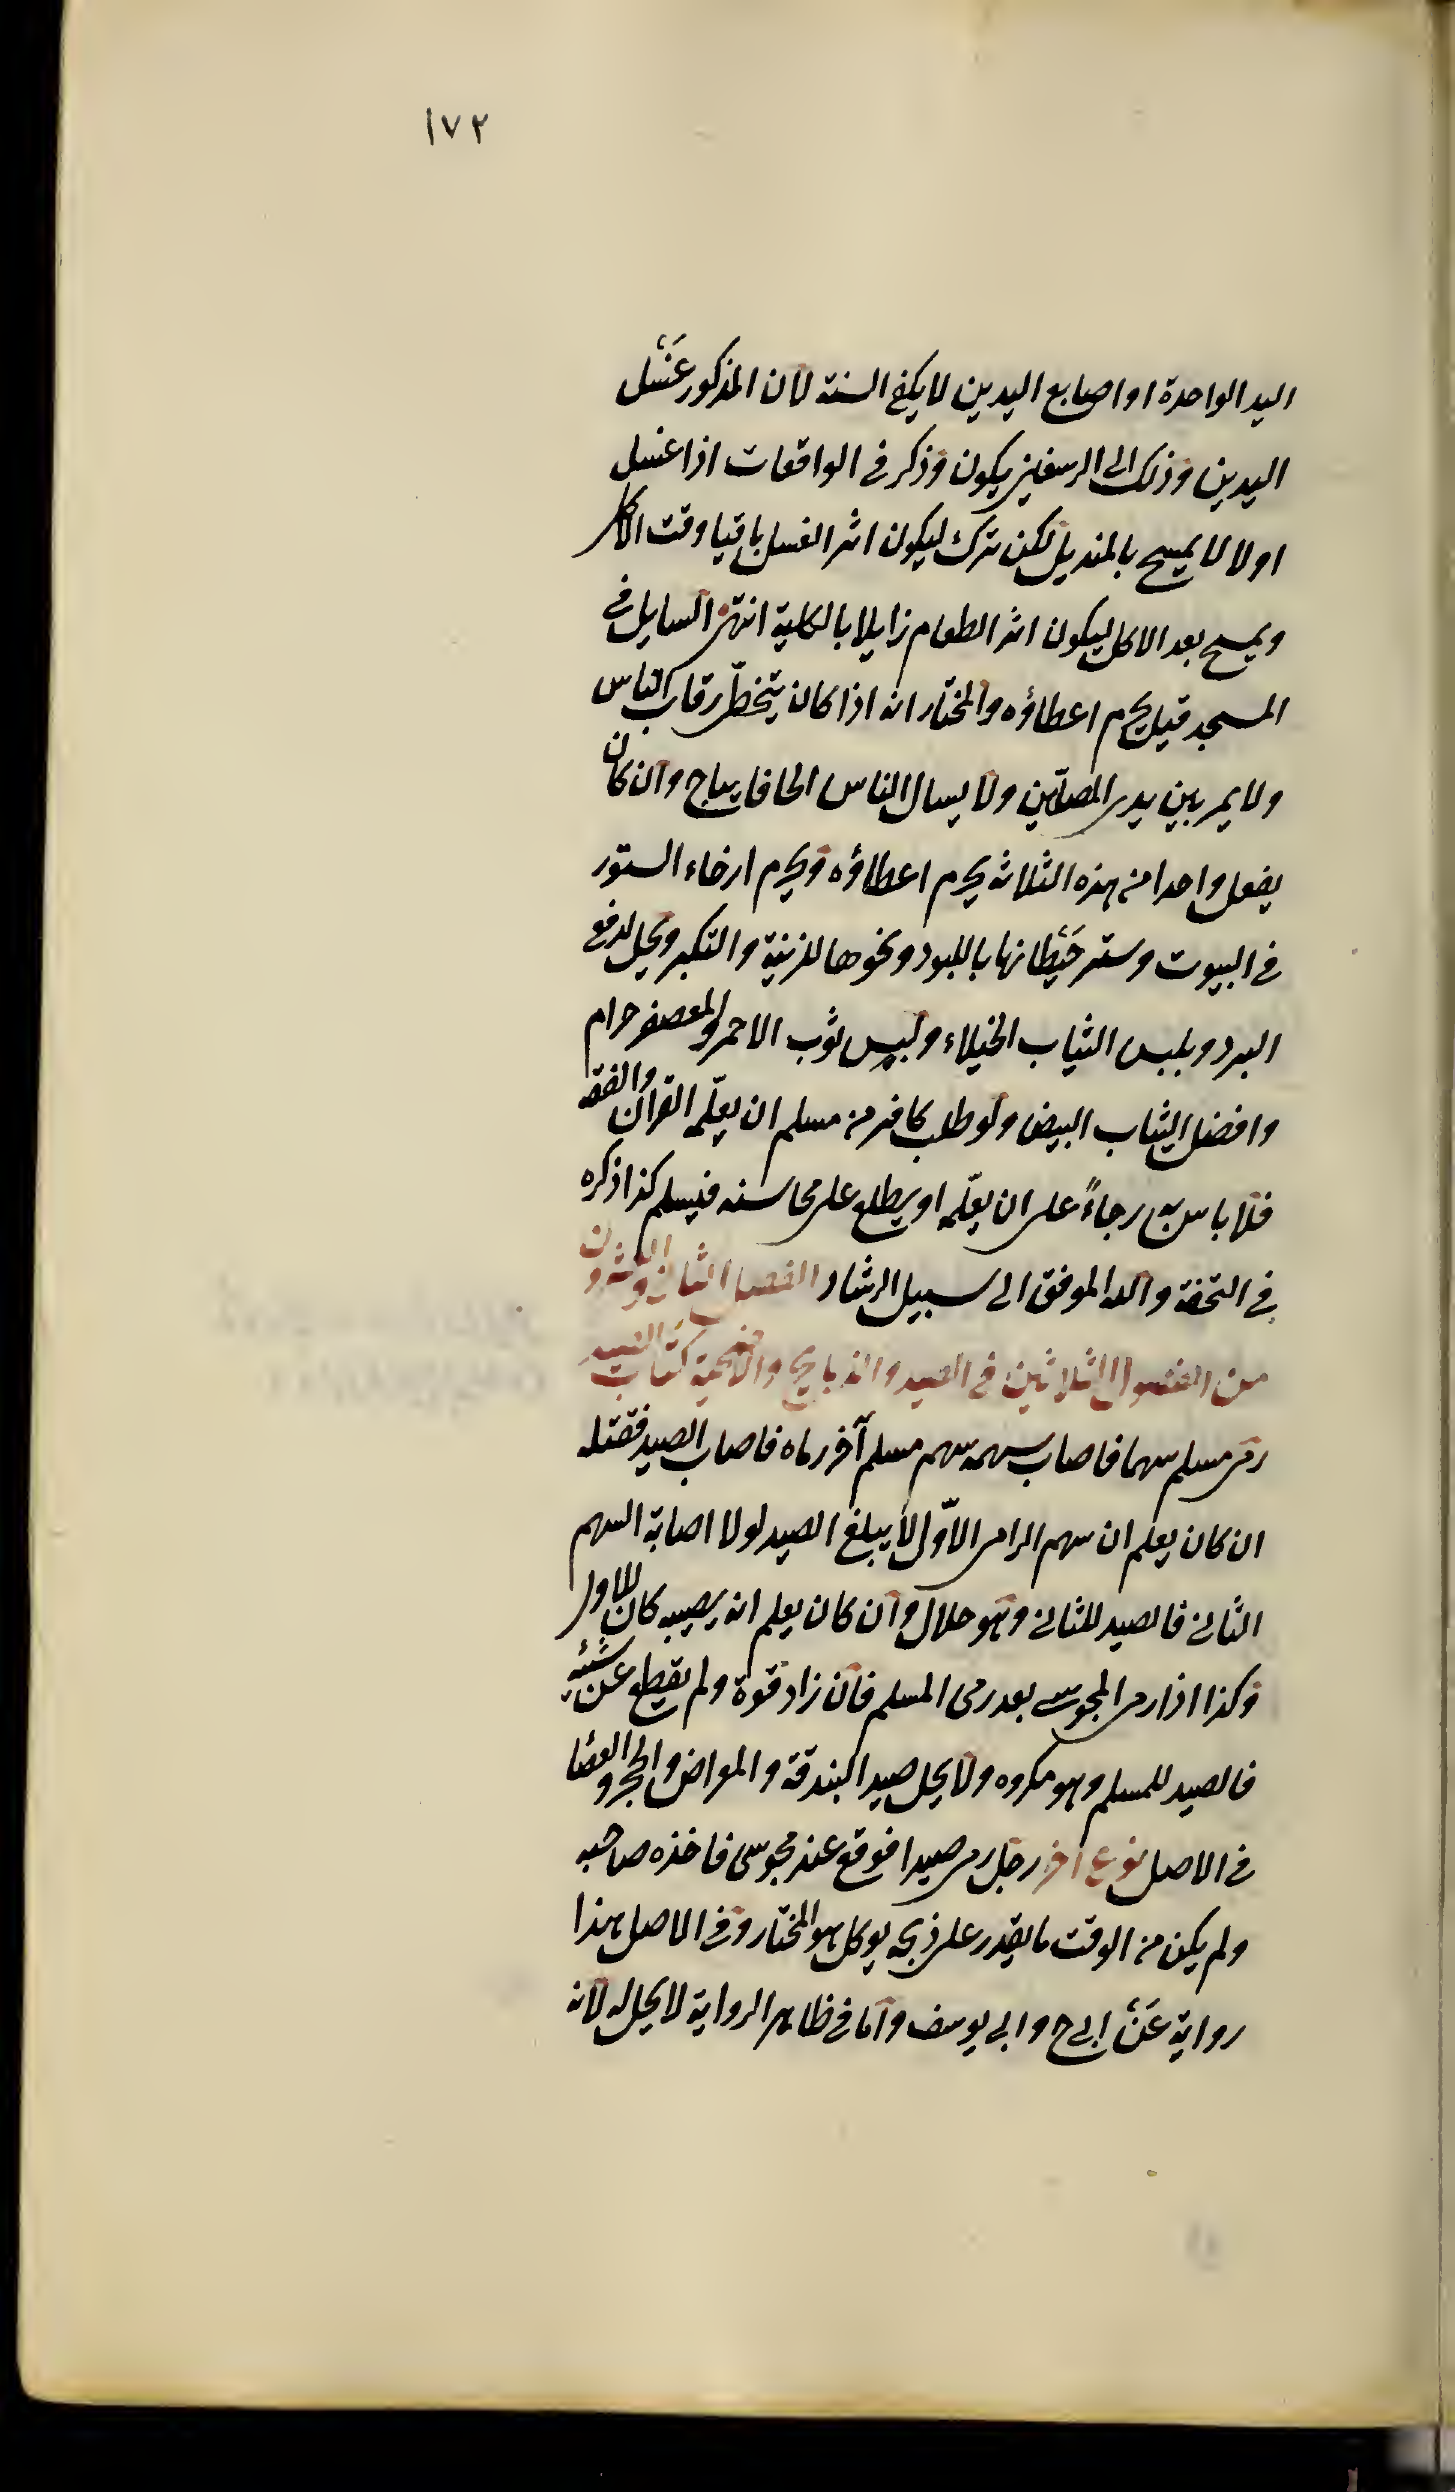 ١٧٢
اليد الواحدة او اصابع اليدين لا يكفي السنة لان المذكور غسل
اليدين وذلك الى الرسغين يكون وذكر في الواقعات اذا غسل
اولا لا يمسح بالمنديل لكن ترك ليكون اثر الغسل باقيا وقت الاكل
ويمسح بعد الاكل ليكون اثر الطعام زايلا بالكلية انتهى السايل في
المسجد قيل يحرم اعطاؤه والمختار انه اذا كان يتخطى رقاب الناس
ولا يمر بين يدى المصلّين ولا يسال الناس الحافا يباح وان كان
يفعل واحدا من هذه الثلاثه يحرم اعطاؤه ويحرم ارخاء الستور
في البيوت وستر حيطانها باللبود ونحوها للزينة والتكبر ويحل لدفع
البرد ويلبس الثياب الخيلاء ولبس ثوب الاحمر والمعصفر حرام
وافضل الثياب البيض ولو طلب كافر من مسلم ان يعلّمه القران والفقه
فلا باس به رجاءً على ان يعلّمه او يطلع على محاسنه فيسلم كذا ذكره
في التحفة والله الموفق الى سبيل الرشاد الفصل الثانى والعشرون
من الفصول الثلاثين في الصيد والذبايح والاضحية كتاب الصيد
رمى مسلم سهما فاصاب سهمه سهم مسلم آخر رماه فاصاب الصيد فقتله
ان كان يعلم ان سهم الرامى الاوّل لا يبلغ الصيد لولا اصابة السهم
الثانى فالصيد للثانى وهو حلال وان كان يعلم انه يصيبه كان للاول
وكذا اذا رمى المجوسى بعد رمى المسلم فان زاد قوة ولم يقطع عن سننه
فالصيد للمسلم وهو مكروه ولا يحل صيد البندقة والمعراض والحجر والعصا
في الاصل نوع اخر رجل رمى صيدا فوقع عند مجوسى فاخذه صاحبه
ولم يكن من الوقت ما يقدر على ذبحه يوكل هو المختار وفي الاصل هذا
رواية عن ابى ح وابى يوسف واما في ظاهر الرواية لا يحل له لانه